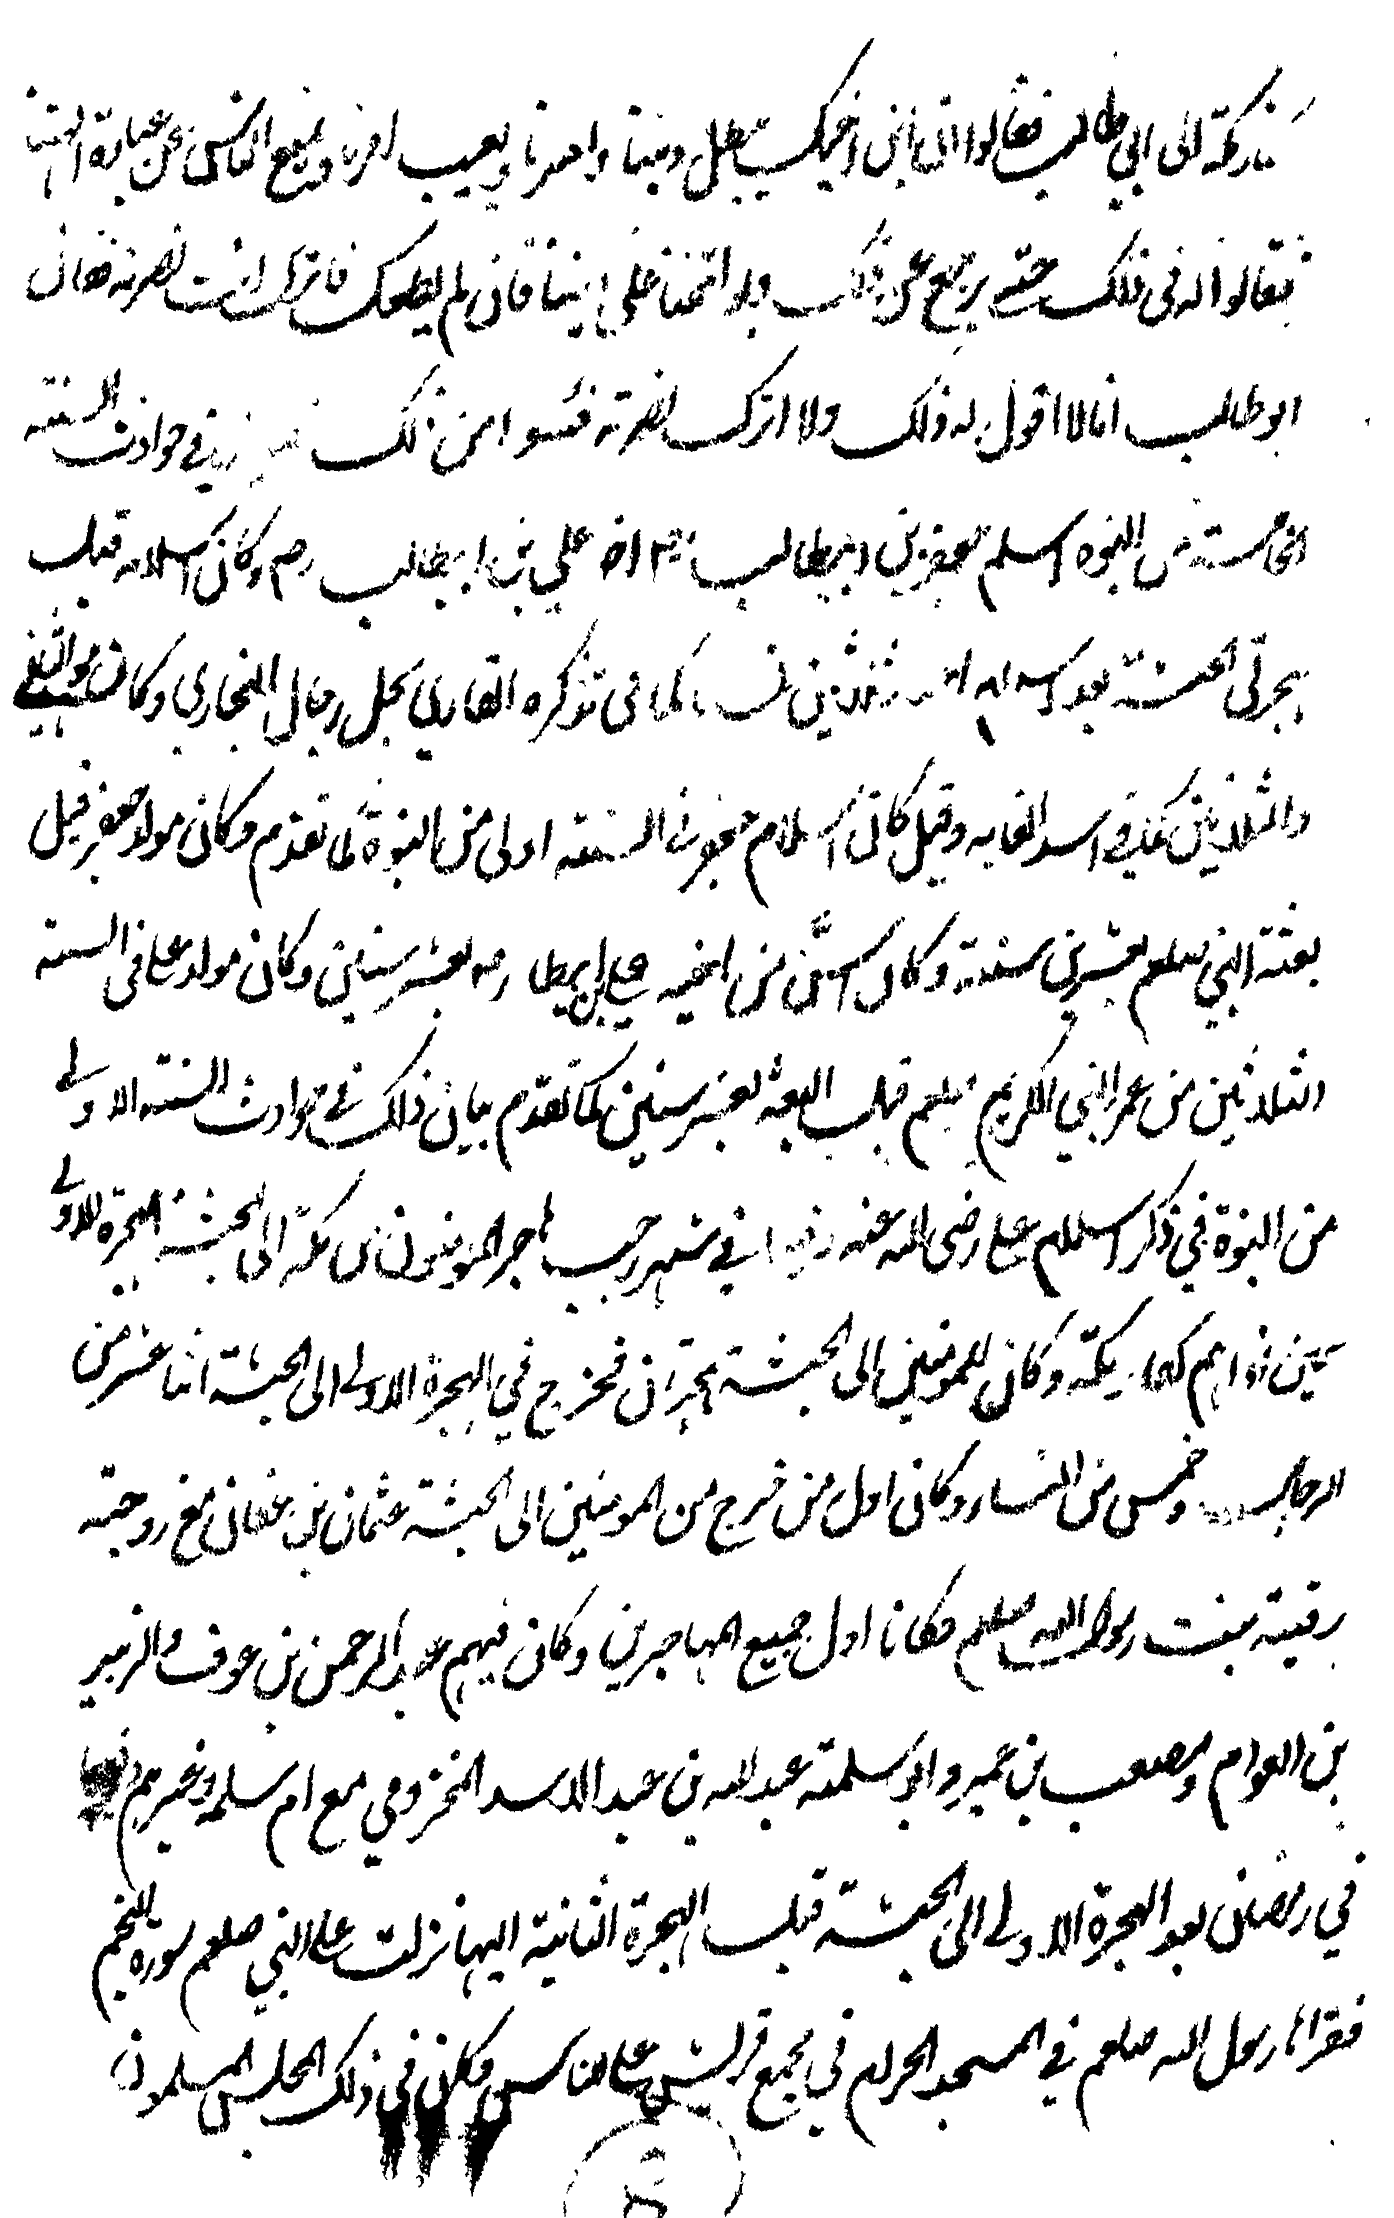 الى ابي طالب فقالوا ان ابن اخيك يبطل ديننا و يعيب و يمنع الناس عن عبادة
فقالوا له في ذلك حتى يرجع عن ذلك فان لم يطعك فاترك انت نصرته فقال
ابو طالب انا لا اقول له ذلك ولا اترك نصرته من ذلك في حوادث السنته
الخامسته من النبوه اسلم جعفر بن ابيطالب علي بن ابيطالب رض وكان اسلامه قبل
هجرتي الحبشته بعد كما في تذكره القاري بحل رجال البخاري وكان
والثلاثين كذا في اسد الغابه وقيل كان اسلام جعفر في السنته اولى من النبوة كما تقدم وكان مولد جعفر قبل
بعثة النبي صلعم بعشرين سنته وكان اسن من اخيه علي بن ابيطا رض بعشر سنين وكان مولد علي في السنه
الثلاثين من عمر النبي الكريم صلعم قبل البعثه بعشر سنين كما تقدم بيان ذلك في حوادث السنته الاولى
من النبوة في ذكر اسلام علي رضى الله عنه في شهر رجب هاجر المومنون من مكة الى الحبشة الهجرة الاولى
حين اذاهم كفار بمكة وكان للمومنين الى الحبشة هجرتان فخرج في الهجرة الاولى الى الحبشة اثنا عشر من
الرجال وخمس من النساء وكان اول من خرج من المومنين الى الحبشة عثمان بن عفان مع زوجته
رقية بنت رسول الله صلعم فكانا اول جميع المهاجرين وكان فيهم عبد الرحمن بن عوف والزبير
بن العوام ومصعب بن عمير وابو سلمة عبد الله بن عبد الاسد المخزومي مع ام سلمه وغيرهم
في رمضان بعد الهجرة الاولى الى الحبشة قبل الهجرة الثانية اليها نزلت على النبي صلعم سورة النجم
فقراها رسول الله صلعم في المسجد الحرام في مجمع قريش على الناس وكان في ذلك المجلس المسلمون